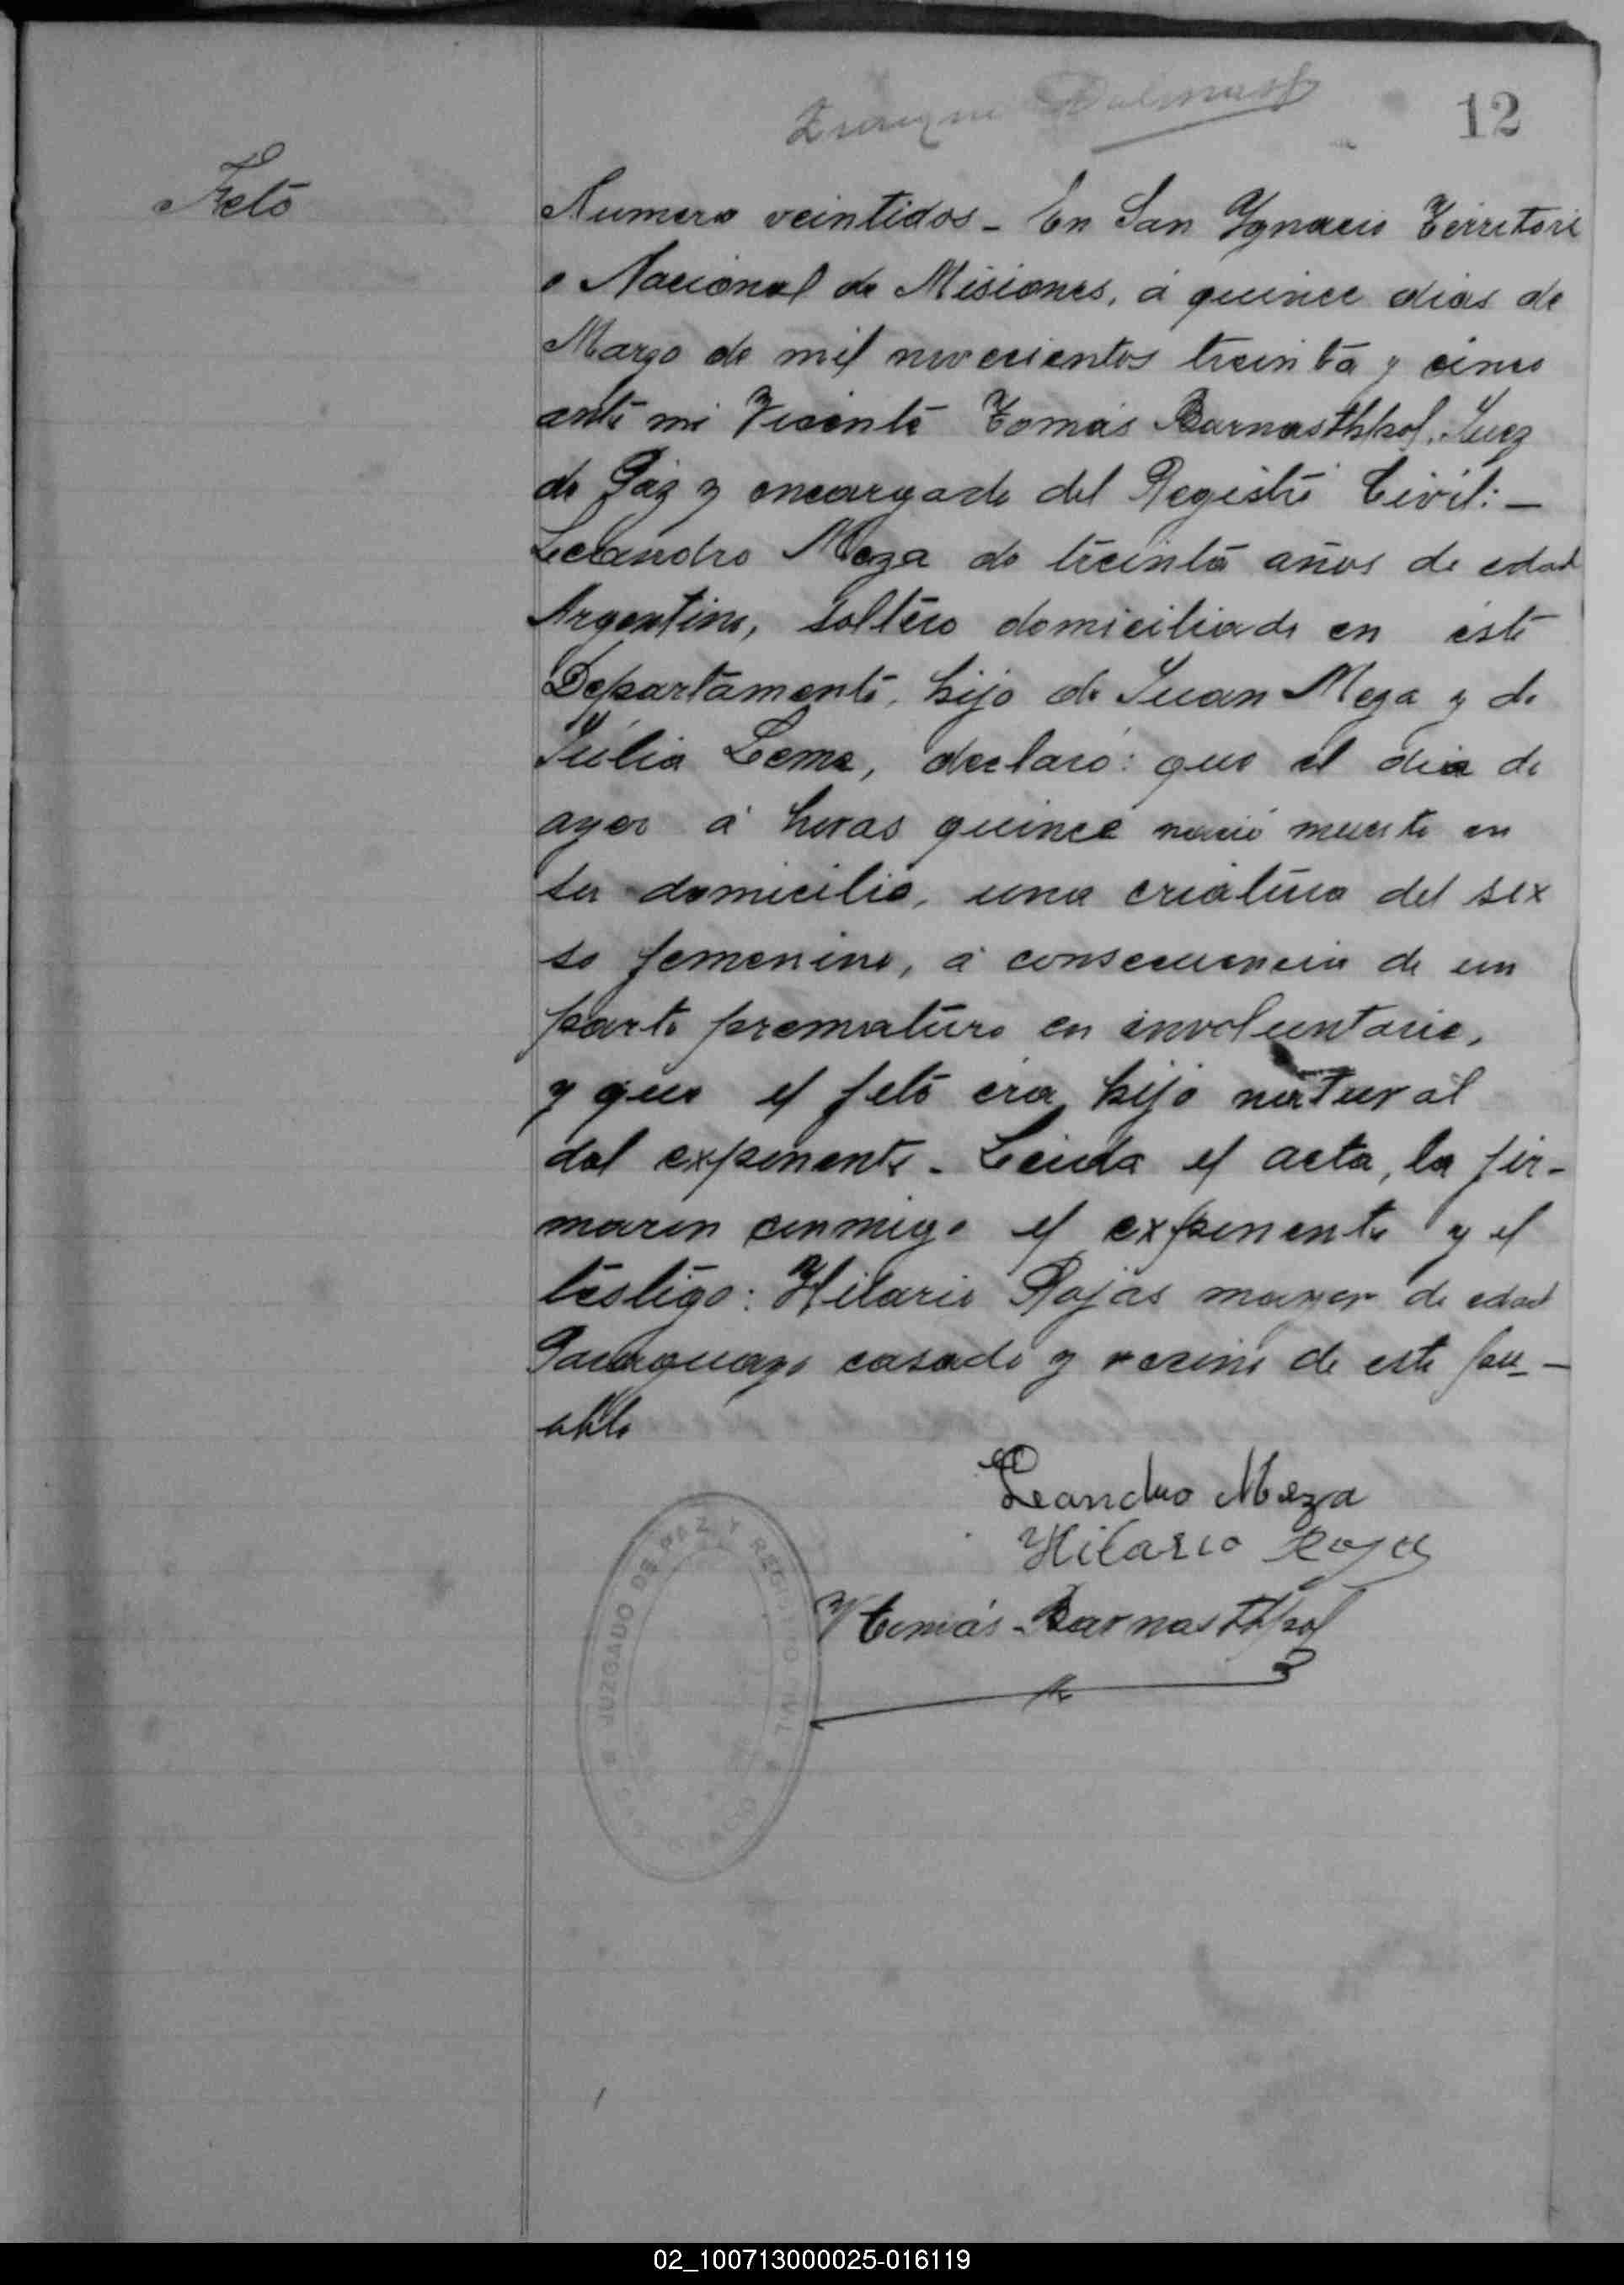 12
Feto
Numero veintidos - En San Ygnacio Territori
o Nacional de Misiones, á quince dias de
Marzo de mil novecientos treinta y cinco
ante mi Vicente Tomás Barnasthpol, Juez
de Paz y encargado del Registro Civil: -
Leandro Meza de treinta años de edad
Argentino, soltero domiciliado en este
Departamento, hijo de Juan Meza y de
Júlia Leme, declaró: que el dia de
ayer á horas quince nació muerto en
su domicilio, una criatura del sex
so femenino, á consecuencia de un
parto prematuro en involuntario,
y que el feto era hijo natural
del exponente - Leida el acta, la fir-
maron conmigo el exponente y el
testigo: Hilario Rojas mayor de edad
Paraguayo casado y vecino de este pu-
eblo
Leandro Meza
Hilario Rojas
VTomás Barnasthpol
JUZGADO DE PAZ Y REGISTRO CIVIL
SAN IGNACIO
02_100713000025-016119